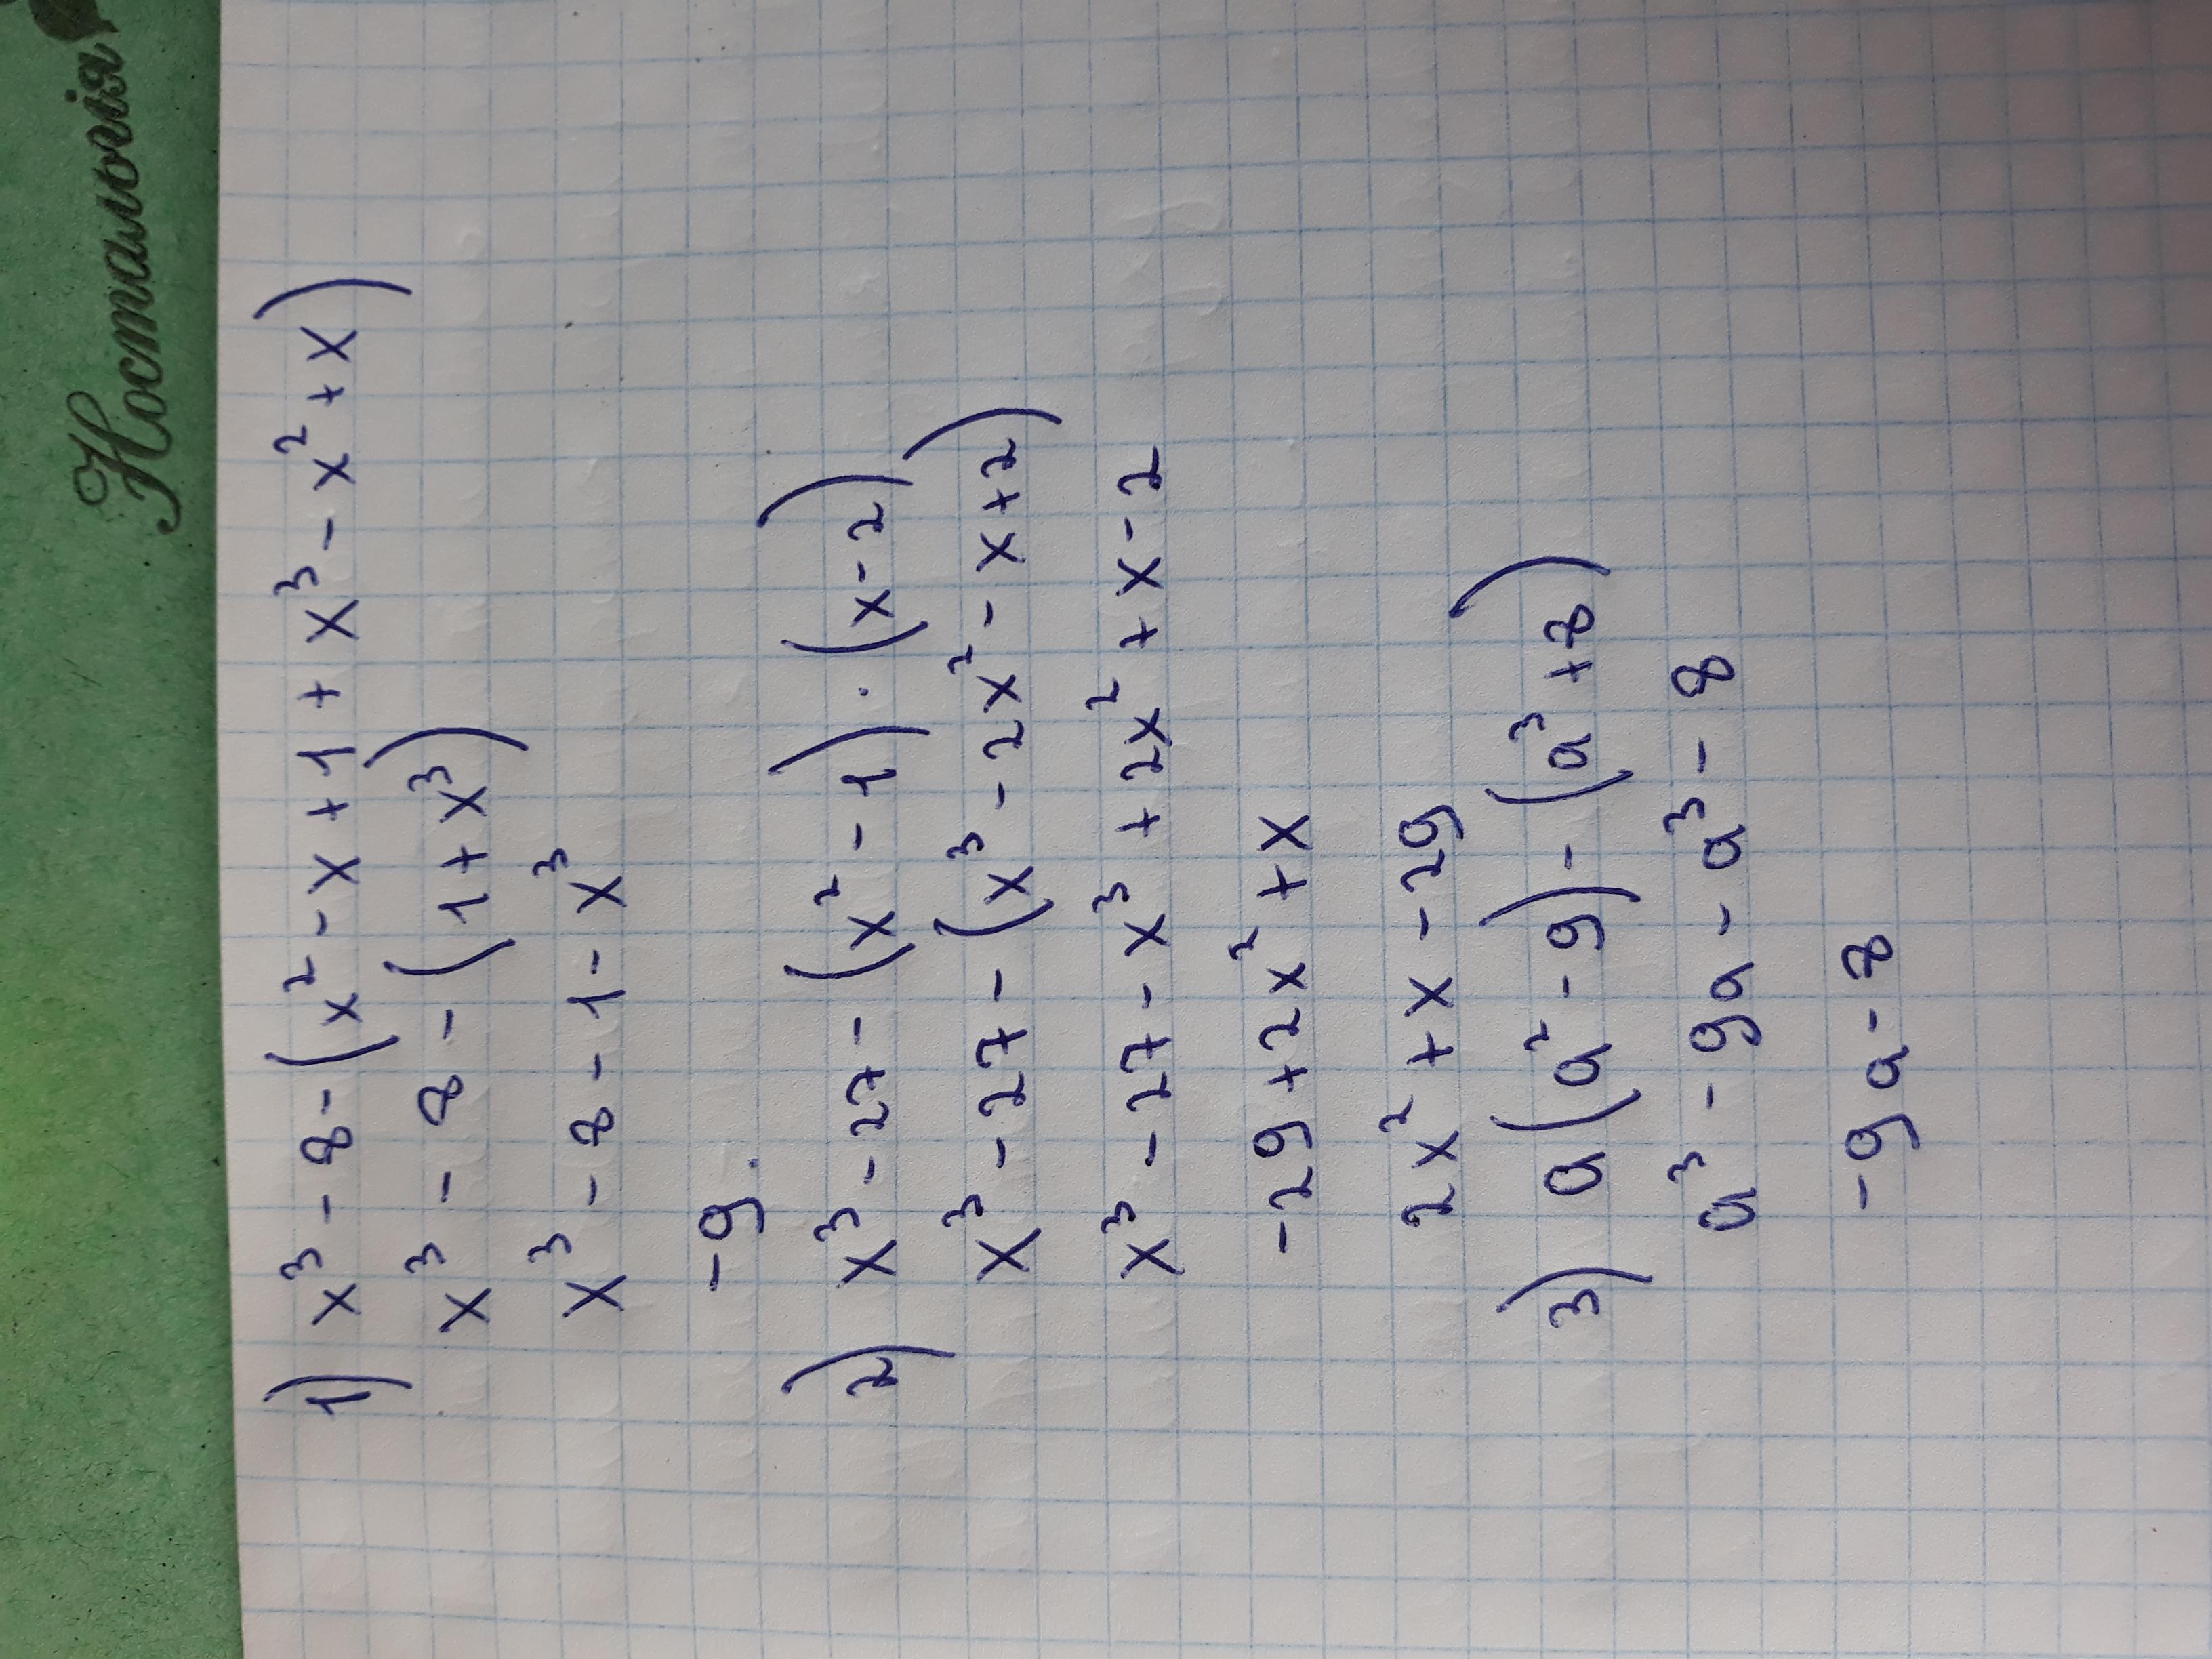 Ностальгія
1) x³ - 8 - (x² - x + 1 + x³ - x² + x)
x³ - 8 - (1 + x³)
x³ - 8 - 1 - x³
-9.
2) x³ - 27 - (x² - 1) · (x - 2)
x³ - 27 - (x³ - 2x² - x + 2)
x³ - 27 - x³ + 2x² + x - 2
-29 + 2x² + x
2x² + x - 29
3) a(a² - 9) - (a³ + 8)
a³ - 9a - a³ - 8
-9a - 8